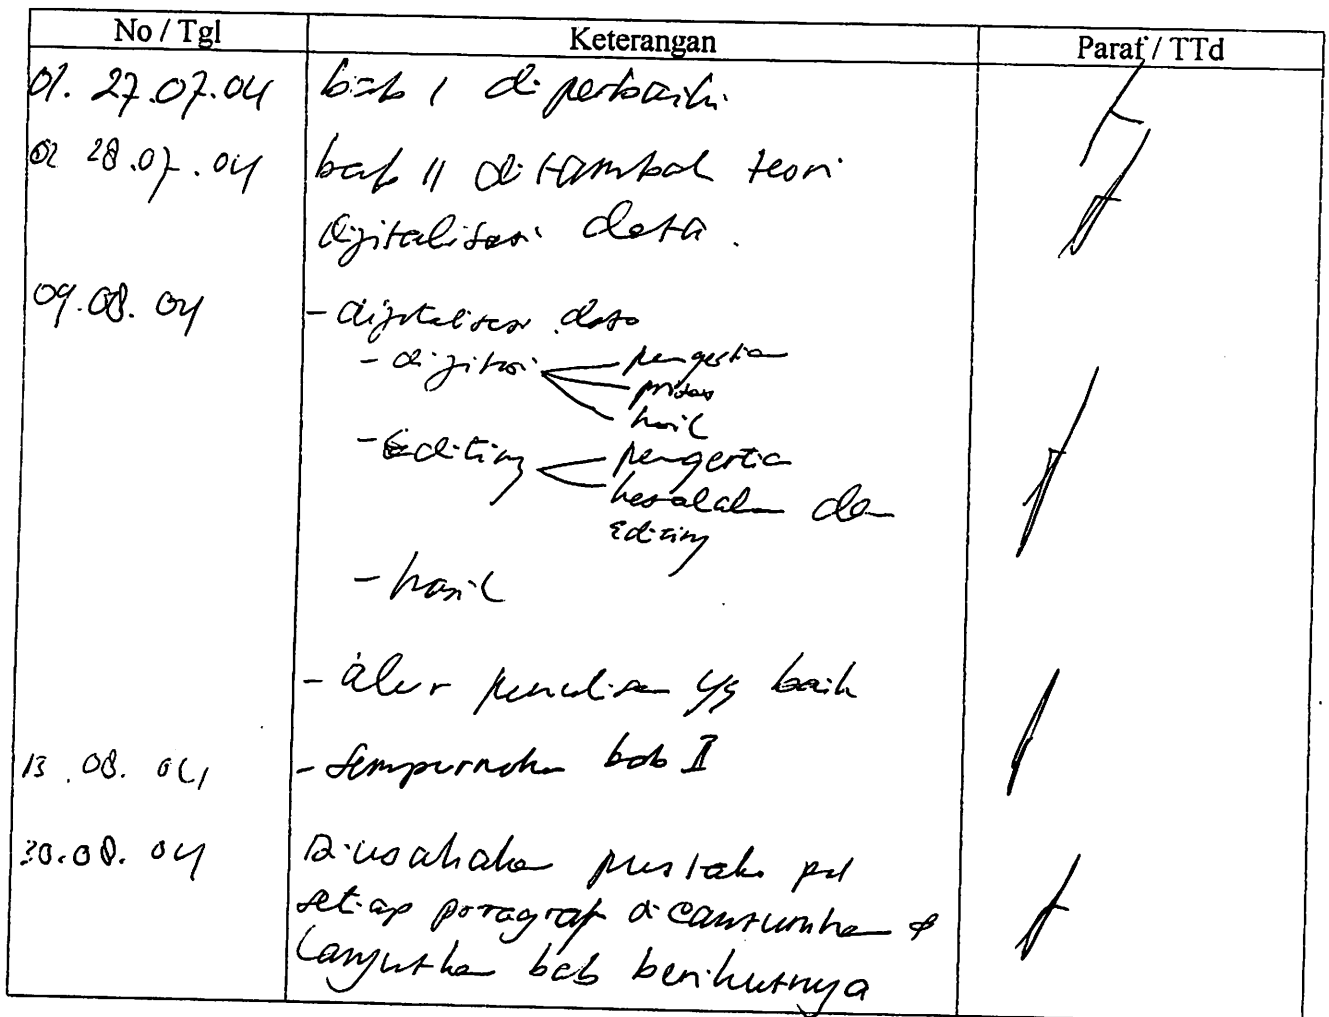 No / Tgl Keterangan Paraf / TTd
01. 27.07.04 bab I diperbaiki
02 28.07.04 bab II ditambah teori
digitalisasi data.
09.08.04 - digitalisasi data
- digitasi pengertian
proses
hasil
- Editing pengertian
kesalahan dan
Editing
- hasil
- alur penulisan yg baik
13.08.04 - Sempurnakan bab II
30.08.04 Diusahakan pustaka pd
setiap paragraf dicantumkan &
Lanjutkan bab berikutnya